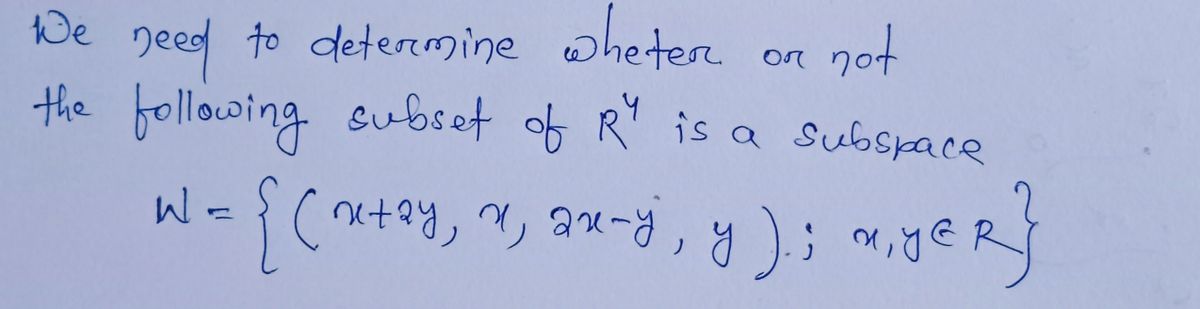 We need to determine wheter or not
the following subset of R⁴ is a subspace
W = { ( x+2y, x, 2x-y, y ) ; x, y ∈ R }